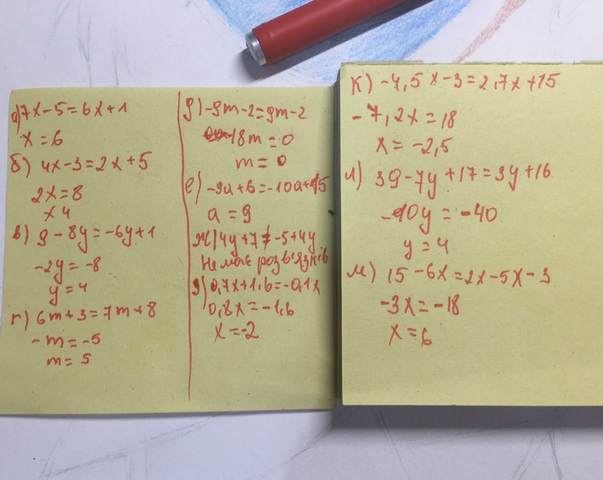 а) 7x-5=6x+1
x=6
б) 4x-3=2x+5
2x=8
x 4
в) 9-8y=-6y+1
-2y=-8
y=4
г) 6m+3=7m+8
-m=-5
m=5
д) -9m-2=9m-2
-18m=0
m=0
е) -9a+6=-10a+15
a=9
ж) 4y+7≠-5+4y
Немає розв'язків
з) 0,7x+1,6=-0,1x
0,8x=-1,6
x=-2
к) -4,5x-3=2,7x+15
-7,2x=18
x=-2,5
л) 39-7y+17=3y+16
-10y=-40
y=4
м) 15-6x=2x-5x-3
-3x=-18
x=6